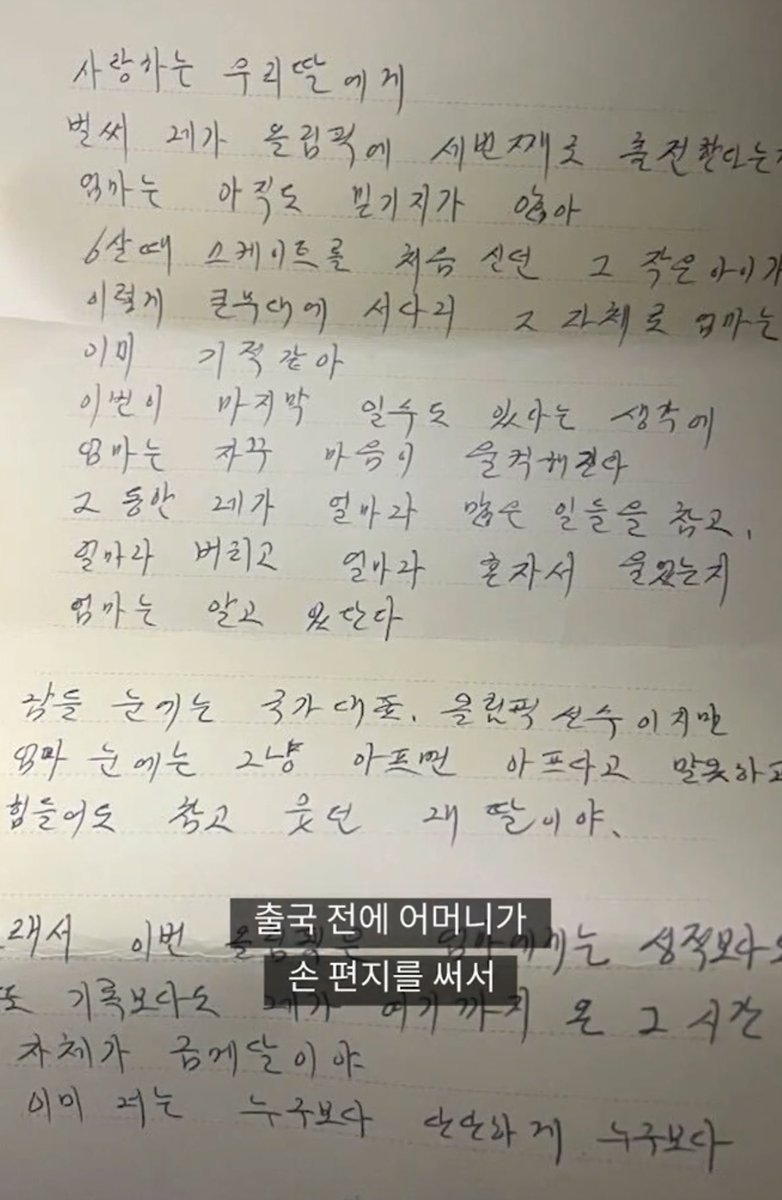 사랑하는 우리딸에게
벌써 레가 올림픽에 세번째로 출전한다는
엄마는 아직도 믿기지가 않아
6살때 스케이트를 처음 신던 그 작은아이가
이렇게 큰무대에 서다니 그 자체로 엄마는
이미 기적같아
이번이 마지막 일수도 있다는 생각에
엄마는 자꾸 마음이 울컥해진다
그 동안 레가 얼마나 많은 일들을 참고,
얼마나 버티고 얼마나 혼자서 울었는지
엄마는 알고 있단다
남들 눈에는 국가대표, 올림픽 선수이지만
엄마 눈에는 그냥 아프면 아프다고 말못하고
힘들어도 참고 웃던 내 딸이야.
이번 엄마에게는 성적보다도
또 기록보다도 레가 여기까지 온 그 시간
자체가 금메달이야
이미 너는 누구보다 단단하게 누구보다
출국 전에 어머니가
손 편지를 써서